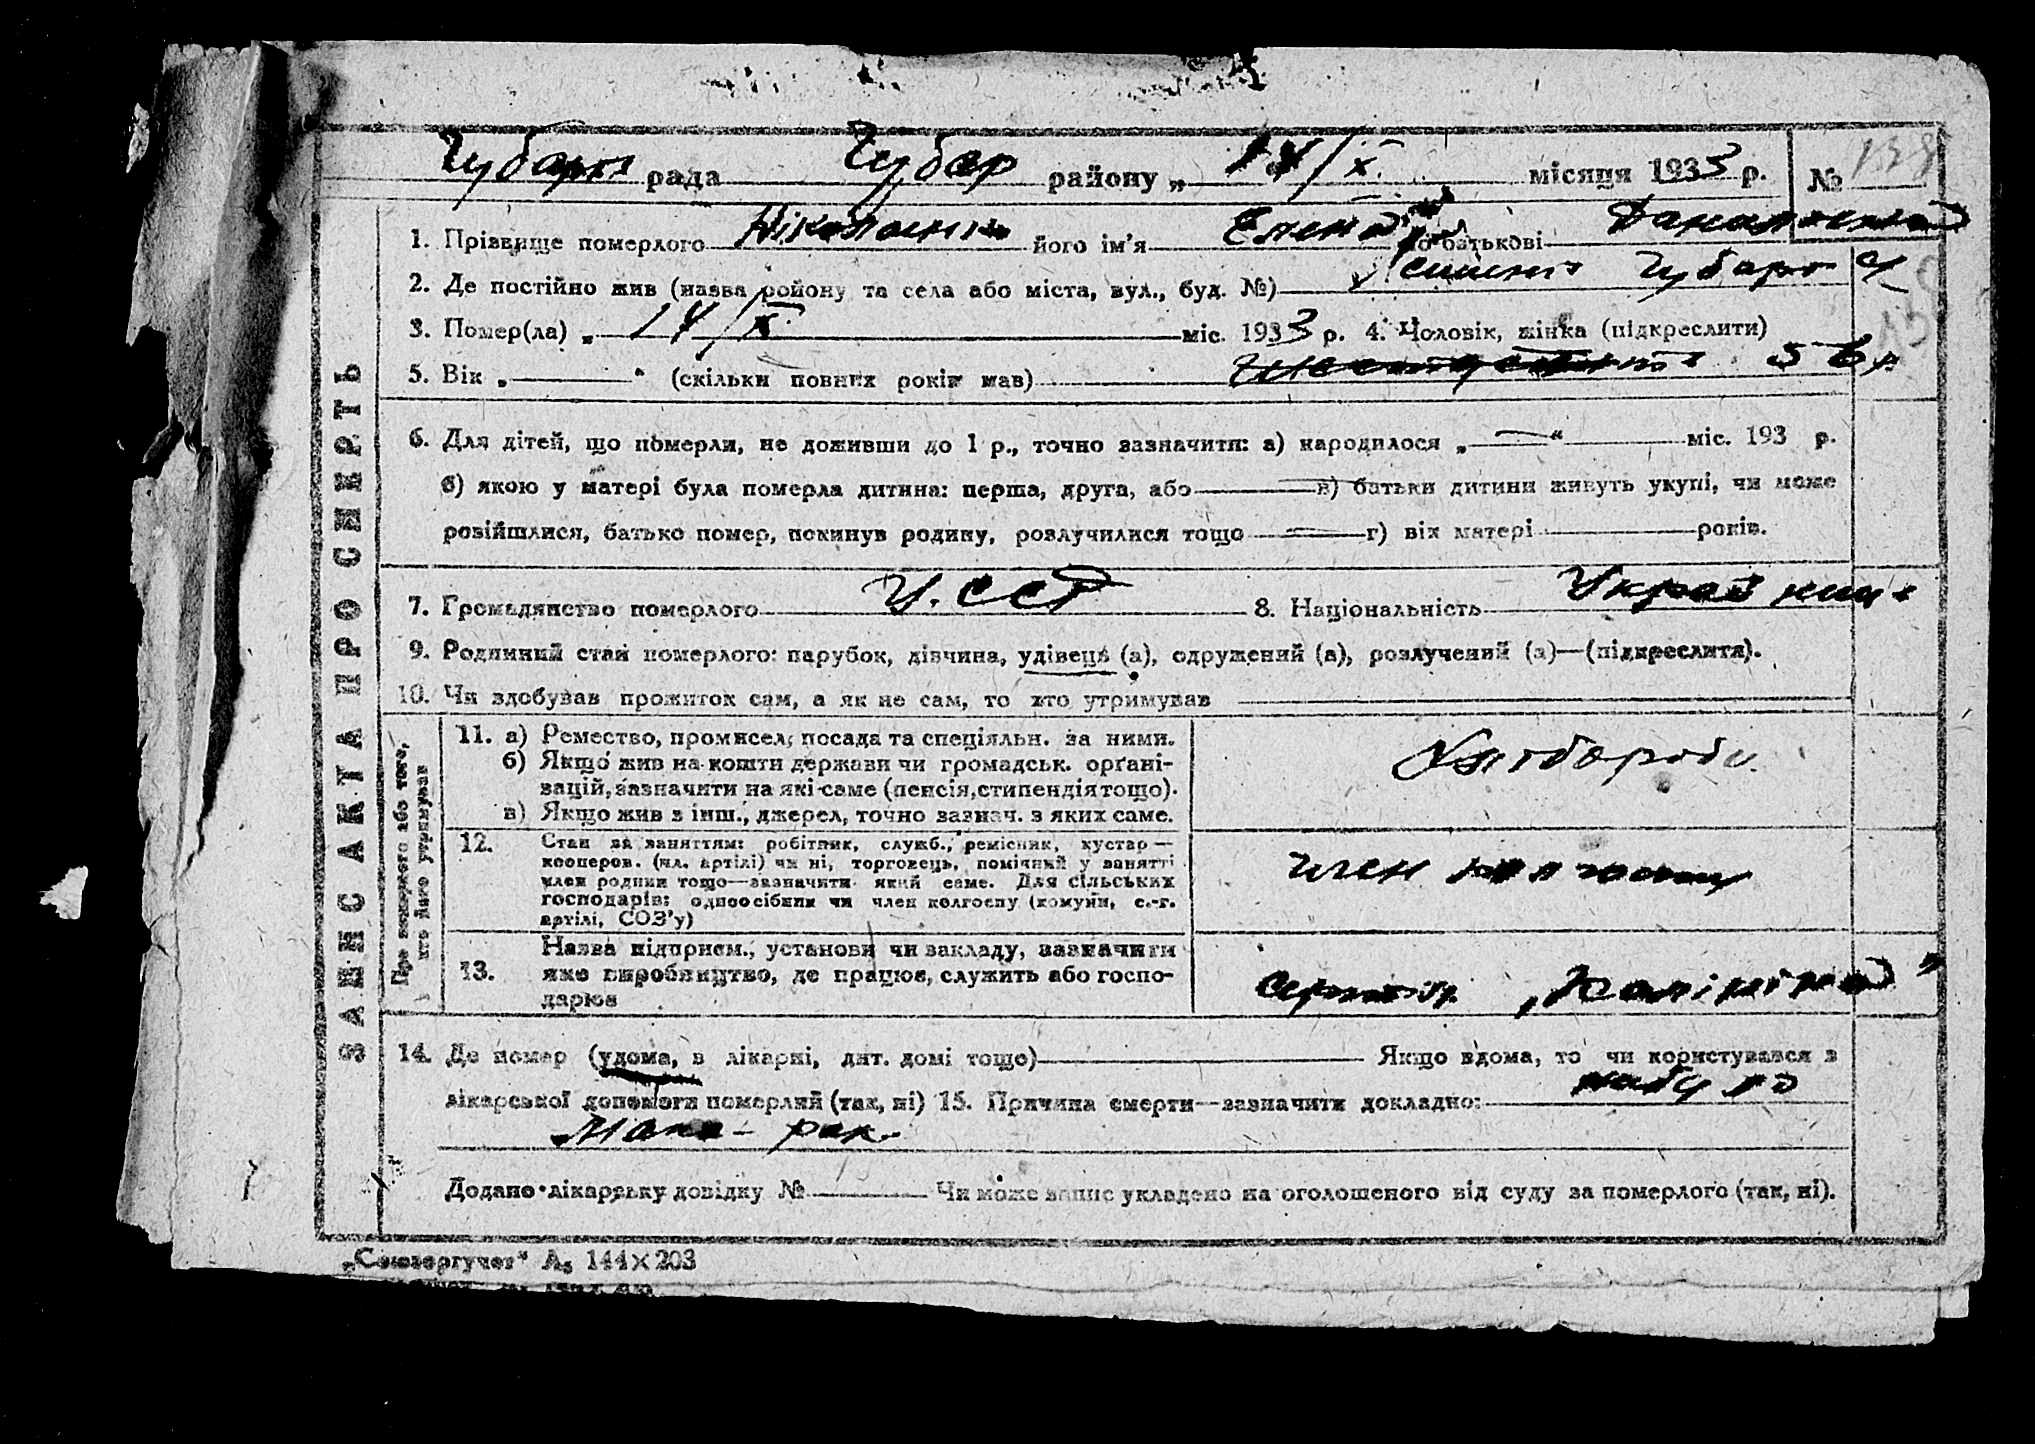 рада Чубар району „ 14/X. місяця 1933 р. № 138
1. Прізвище померлого його ім'я Елена по батькові
2. Де постійно жив (назва ройону та села або міста, вул., буд. №)
3. Помер(ла) „ 14/X. міс. 1933 р. 4. Чоловік, жінка (підкреслити)
5. Вік „ “ (скільки повних років мав) 56 р
6. Для дітей, що померли, не доживши до 1 р., точно зазначити: а) народилося „ “ міс. 193 р.
б) якою у матері була померла дитина: перша, друга, або в) батьки дитини живуть укупі, чи може
розійшлися, батько помер, покинув родину, розлучилися тощо г) вік матері років.
7. Громадянство померлого У.ССР 8. Національність Українц.
9. Родинний стан померлого: парубок, дівчина, удівець (а), одружений (а), розлучений (а)—(підкреслити).
10. Чи здобував прожиток сам, а як не сам, то хто утримував
ЗАПИС АКТА ПРО СМЕРТЬ
Про померлого або того, хто його утримував
11. а) Ремество, промисел, посада та спеціяльн. за ними. Хлібороб.
б) Якщо жив на кошти держави чи громадськ. органі-
зацій, зазначити на які саме (пенсія, стипендія тощо).
в) Якщо жив з інш., джерел, точно зазнач. з яких саме.
12. Стан за заняттям: робітник, служб., ремісник, кустар—
кооперов. (чл. артілі) чи ні, торговець, помічний у занятті
член родини тощо—зазначити який саме. Для сільських
господарів: одноосібник чи член колгоспу (комуни, с.-г.
артілі, СОЗ'у)
член колгоспу
13. Назва підприєм., установи чи закладу, зазначити
яке виробництво, де працює, служить або госпо-
дарює
„Калініна”
14. Де помер (удома, в лікарні, дит. домі тощо) Якщо вдома, то чи користувався з
лікарської допомоги померлий (так, ні) 15. Причина смерти—зазначити докладно:
рак.
Додано лікарську довідку № Чи може запис укладено на оголошеного від суду за померлого (так, ні).
„Союзоргучет“ А₅ 144×203